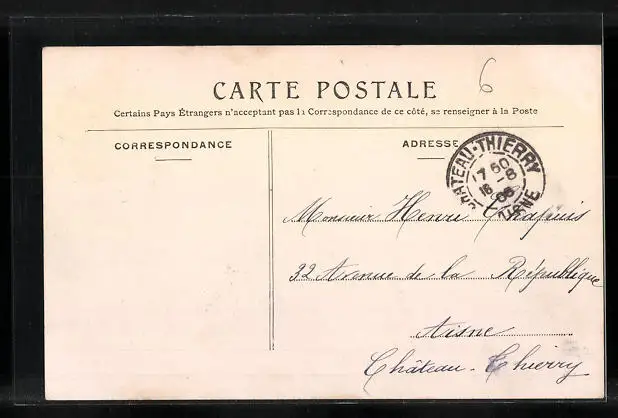 6
CARTE POSTALE
Certains Pays Étrangers n'acceptent pas la Correspondance de ce côté, se renseigner à la Poste
CORRESPONDANCE
ADRESSE
CHATEAU-THIERRY
17 50
16 -8
AISNE
Monsieur Henri Chapuis
32 Avenue de la République
Aisne
Château-Thierry